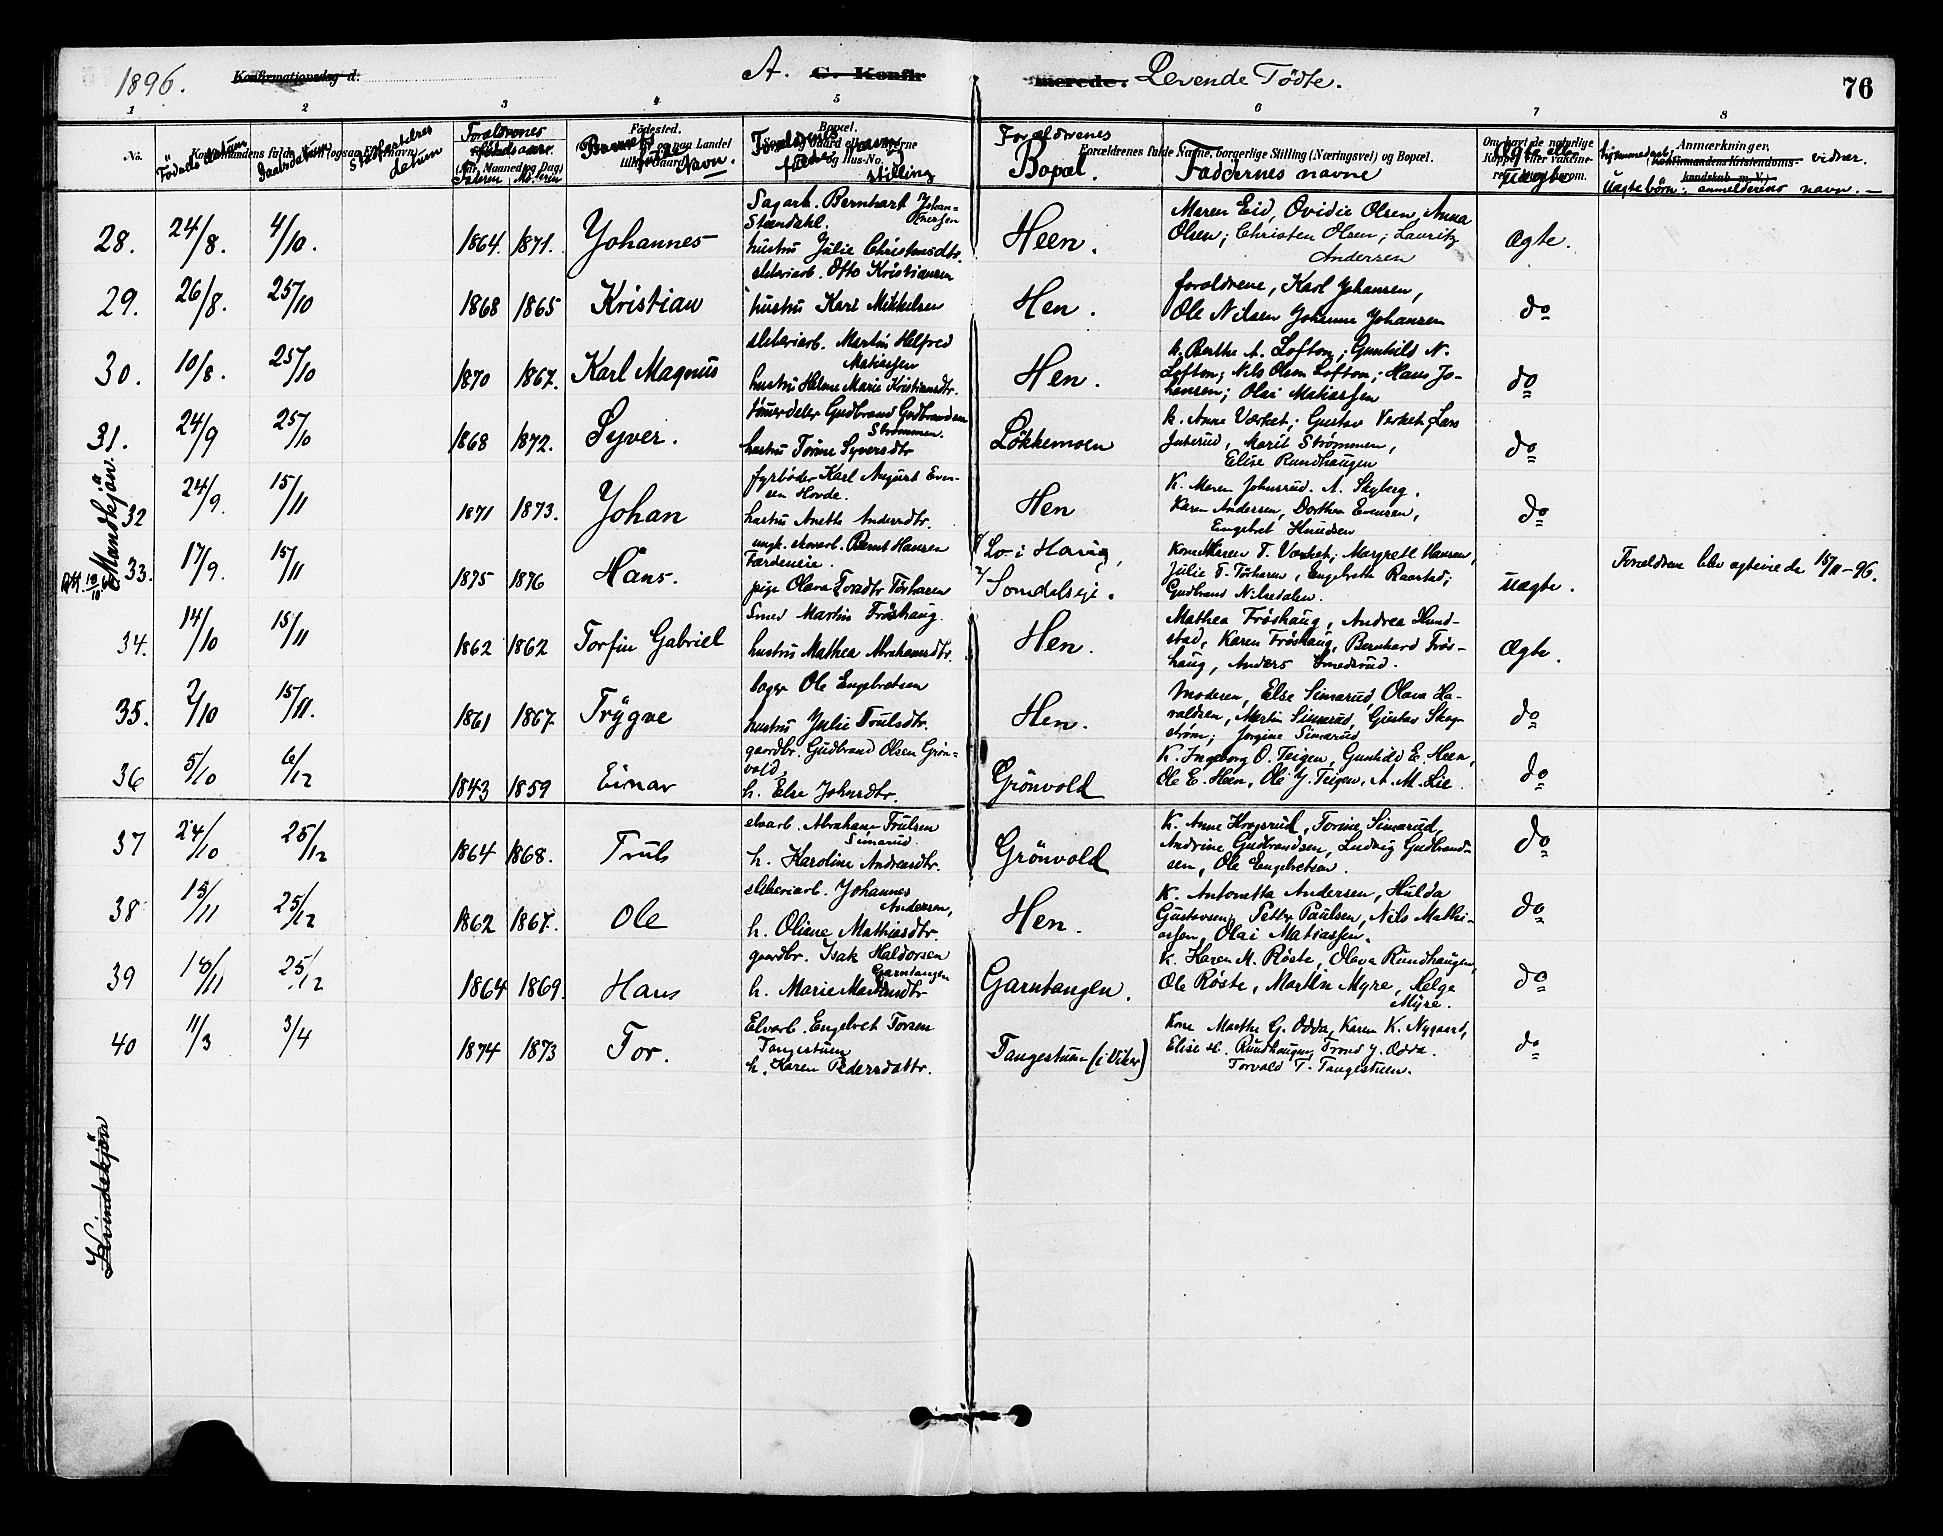 1896.
Konfirmationsdag d.
A. C. Konfirmerede. Levende Födte.
76
1 2 3 4 5 6 7 8
No. Födselsdatum Daabsdatum Forældrenes födselsaar. Faderen Moderen Barnets fulde Navn. Forældrenes navne og faderens stilling Forældrenes Bopæl. Faddernes navne Ægte eller uægte Anmærkninger.
Uægte börn: anmelderens navn. —
Mandkjön.
28. 24/8. 4/10. 1864. 1871. Johannes
Sagarb. Bernhart Johan-
Strandahl.
hustru Julie Christensdtr.
Heen.
Maren Eid, Ovidie Olsen, Anna
Olsen; Christen Olsen; Lauritz
Andersen
Ægte.
29. 26/8. 25/10 1868 1865 Kristian
sliberiarb. Otto Kristiansen
hustru Kari Mikkelsen
Hen.
forældrene, Karl Johansen,
Ole Nilsen Johanne Johansen
do
30. 10/8. 25/10 1870 1867. Karl Magnus
sliberiarb. Martin Helfred
Matiassen
hustru Helene Marie Kristiansdtr.
Hen.
k. Berthe A. Loftom; Gunhild N.
Loftom; Nils Olsen Loftom; Hans Jo-
hansen; Olai Matiassen
do
31. 24/9 25/10 1868 1872. Syver.
Gudbrand Gudbrandsen
Strømmen.
hustru Torine Syversdtr
Lökkemoen
k. Anne Værket; Gustav Verket, Lars
Marit Strømmen,
Elise Rundhaugen
do
32 24/9. 15/11 1871 1873. Johan
fyrböder Karl August Even-
sen Hovde.
hustru Anette Andersdtr.
Hen
K. Maren Johnsrud. A. Skyberg.
Karen Andersen, Dorthea Evensen,
Engebret Knudsen
do
33. 17/9. 15/11 1875 1876 Hans.
ungk. skovarb. Bernt Hansen
pige Olava
1/ Lo i Haug,
2/ Somdalseje.
Kone Karen T. Værket; Margrete Hansen,
Julie T. Engebrethe Raastad;
Gudbrand Nilsedalen.
uægte.
Forældrene blev ægteviede 15/11-96.
34. 14/10 15/11 1862 1862 Torfin Gabriel
Smed Martin Fröshaug.
hustru Mathea Abrahamsdtr.
Hen.
Mathea Fröshaug, Andrea Hund-
stad, Karen Fröshaug, Bernhard Frös-
haug, Anders Smedsrud.
Ægte.
35. 2/10 15/11. 1861 1867. Trygve
Ole Engebretsen
hustru Julie Trulsdtr.
Hen.
Moderen, Else Simarud, Olava Ha-
raldsen, Martin Simarud, Gustav Skog-
strøm; Jørgine Simarud
do
36 5/10 6/12 1843 1859 Einar
gaardbr. Gudbrand Olsen Grön-
vold,
h. Else Johnsdtr.
Grönvold
K. Ingeborg O. Teigen, Gunhild E. Heen,
Ole E. Heen, Ole J. Teigen, A. M. Lie.
do
37 24/10 25/12 1864 1868. Truls
elvarb. Abraham Trulsen
Simarud
h. Karoline Andreasdtr.
Grönvold
K. Anne Torine Simarud,
Andrine Gudbrandsen, Ludvig Gudbrand-
sen, Ole Engebretsen.
do
38 13/11 25/12 1862 1867. Ole
sliberiarb. Johannes
Andersen,
h. Oliane Mathiasdtr.
Hen.
K. Antonetta Andersen, Hulda
Gustavsen, Petter Paulsen, Nils Mathi-
assen, Olai Matiassen.
do
39 18/11 25/12 1864 1869. Hans
gaardbr. Isak Haldorsen
Garntangen
h. Marie
Garntangen.
K. Karen M. Röste, Olava Rundhaugen,
Ole Röste, Martin Myre, Helge
Myre.
do
40 11/3 3/4 1874 1873 Tor.
Elvarb. Engebret Torsen
Tangestuen
h. Karen Pedersdattr.
Tangestuen (i Viker)
Kone Marthe G. Odda, Karen K. Nygaard,
Elise H. Rundhaugen, Trond J. Odda.
Torvald T. Tangestuen.
do
Kvindekjön